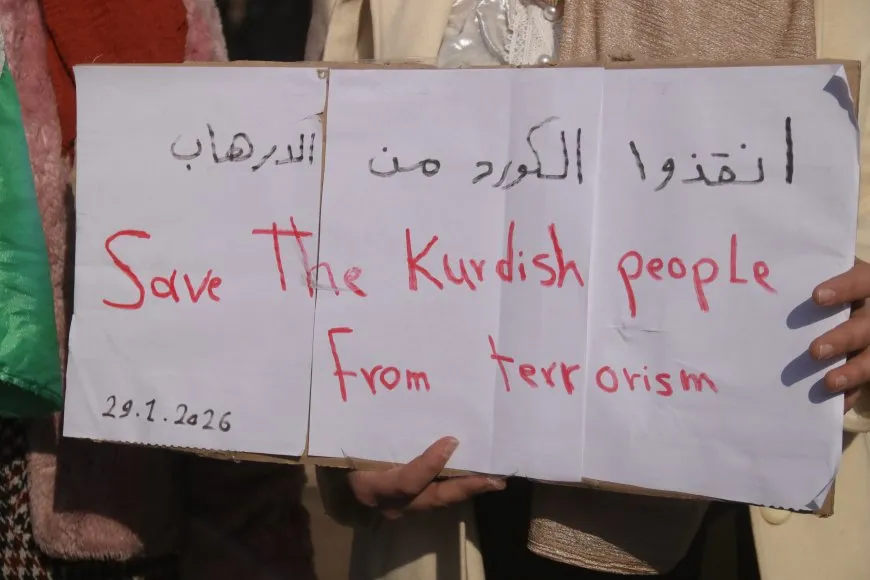 انقذوا الكورد من الارهاب
Save The Kurdish people
From terrorism
29.1.2026